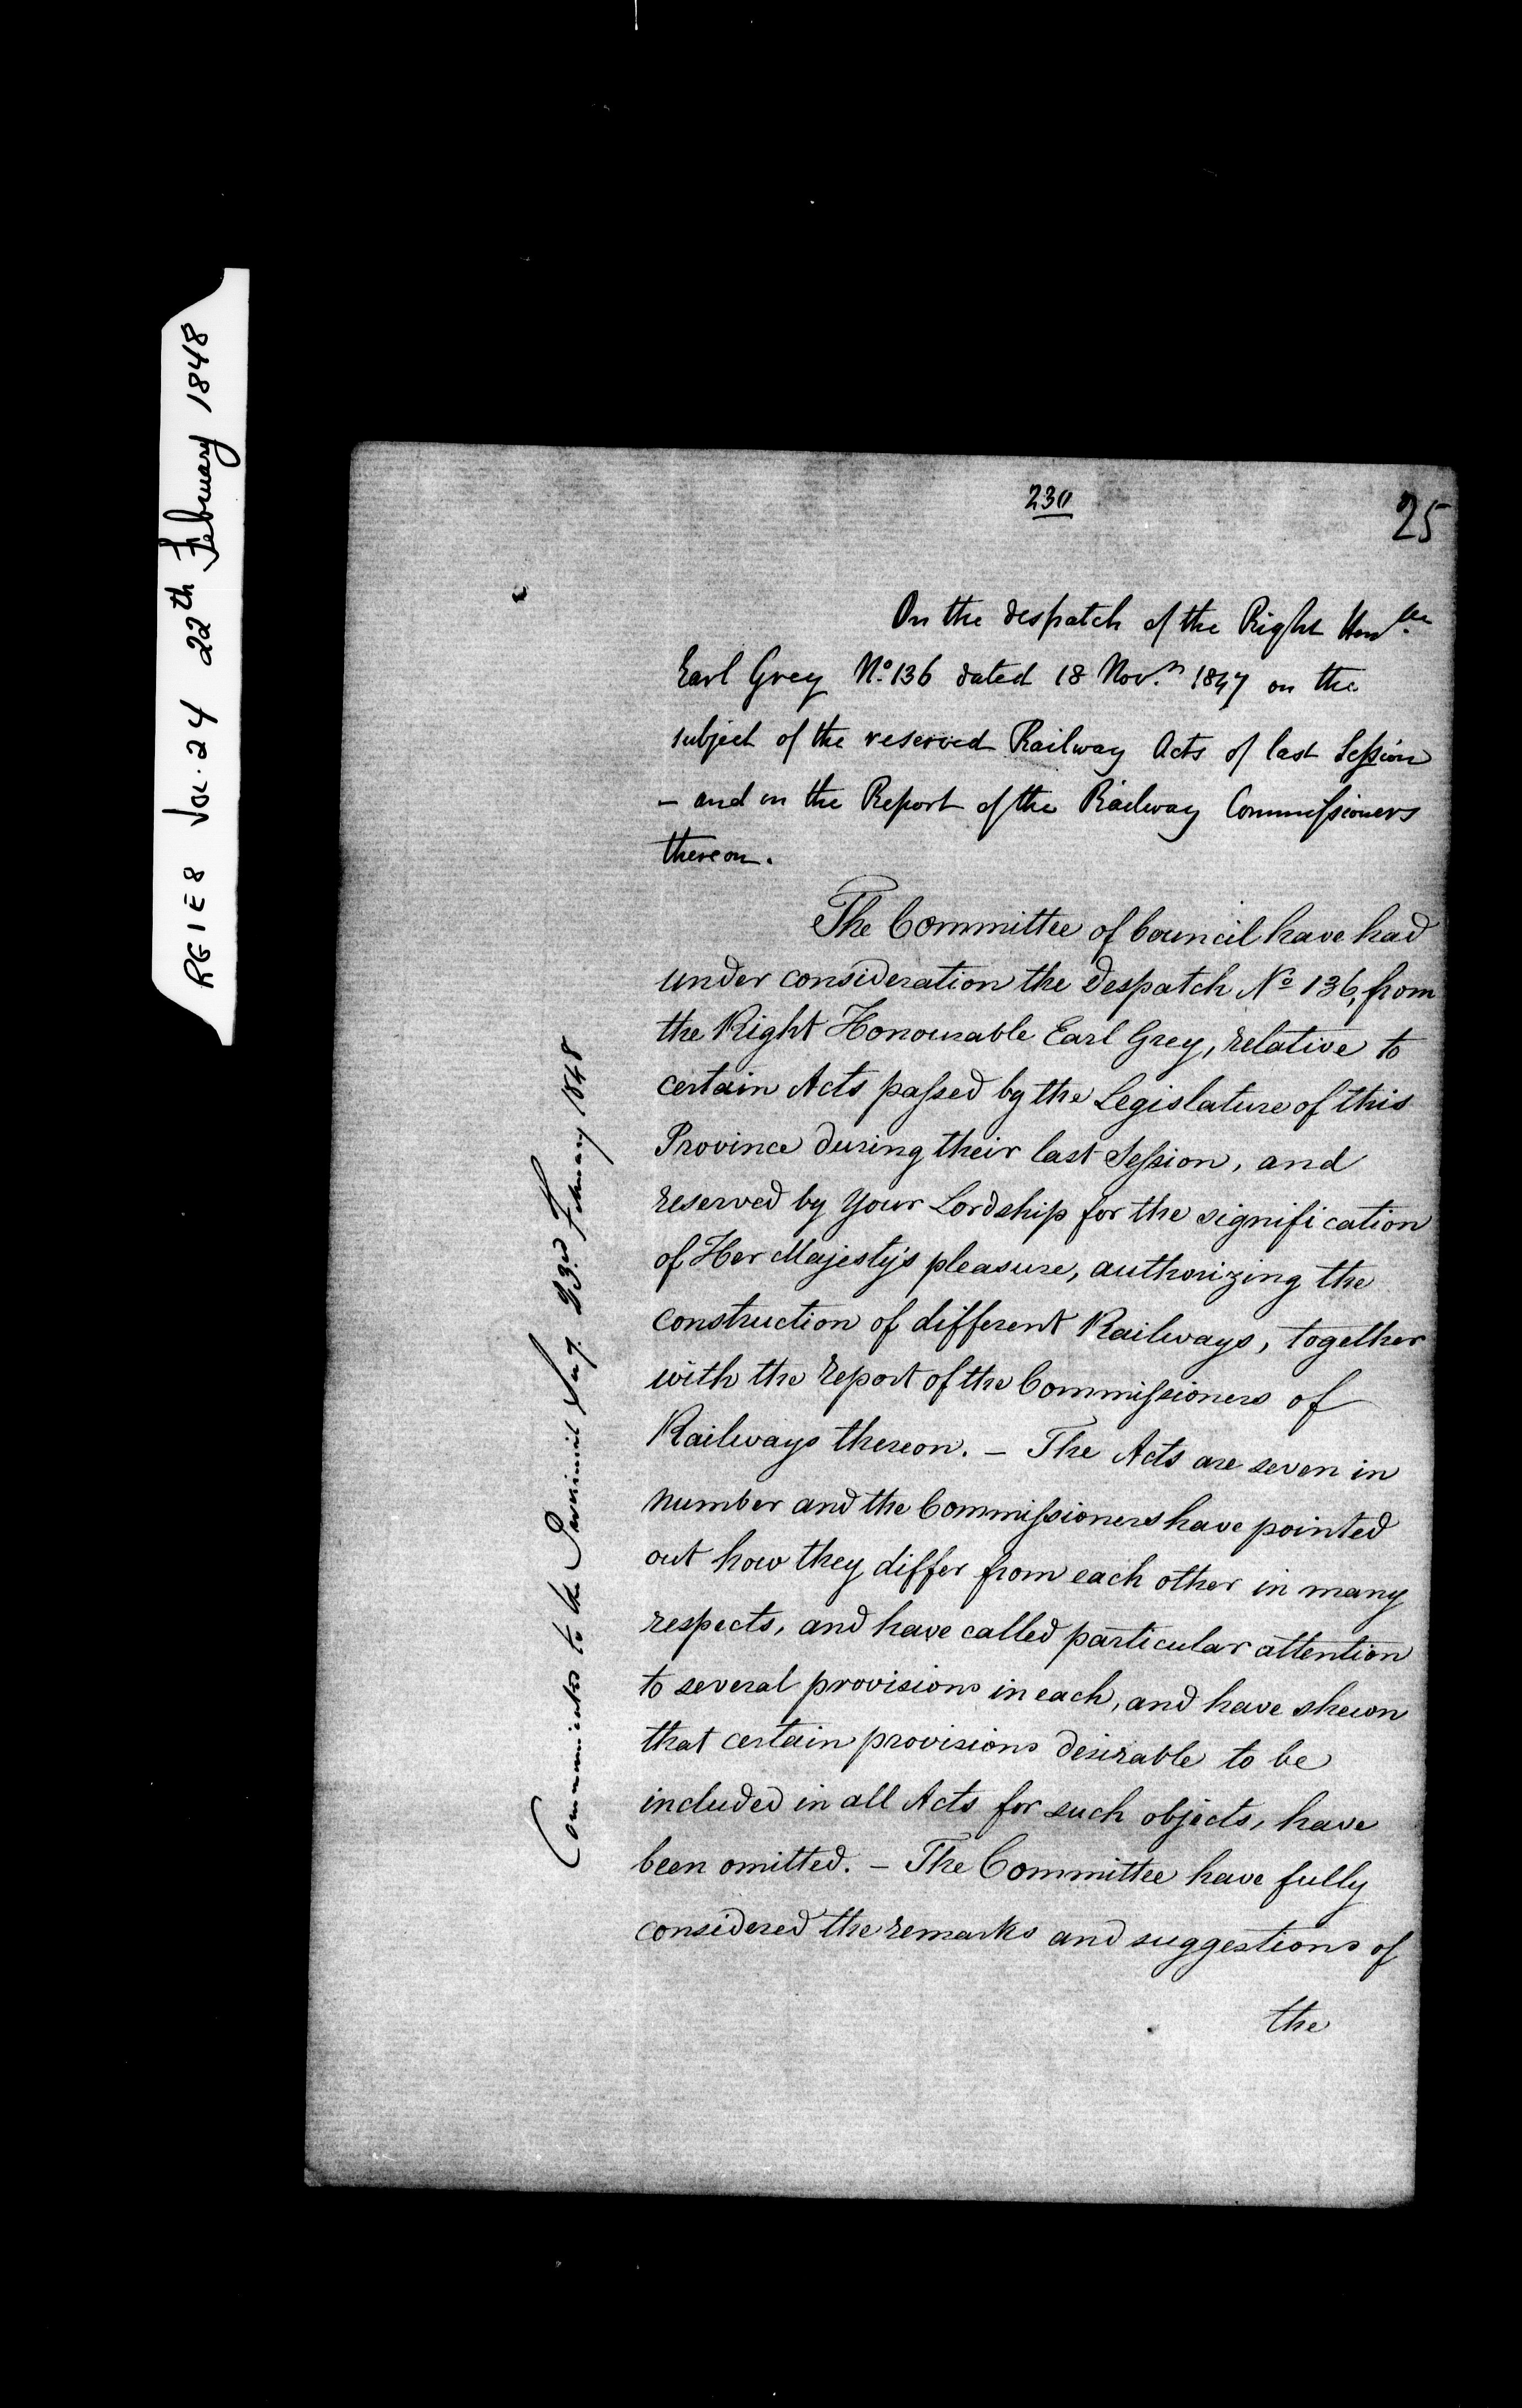 RG1E8 Vol. 24 22th February 1848
230
25
On the despatch of the Right Honble
Earl Grey No. 136 dated 18 Novr. 1847 on the
subject of the reserved Railway Acts of last Session
– and on the Report of the Railway Commissioners
thereon.
The Committee of Council have had
under consideration the despatch No 136, from
the Right Honourable Earl Grey, relative to
certain Acts passed by the Legislature of this
Province during their last Session, and
reserved by Your Lordship for the signification
of Her Majesty's pleasure, authorizing the
construction of different Railways, together
with the report of the Commissioners of
Railways thereon. – The Acts are seven in
number and the Commissioners have pointed
out how they differ from each other in many
respects, and have called particular attention
to several provisions in each, and have shewn
that certain provisions desirable to be
included in all Acts for such objects, have
been omitted. – The Committee have fully
considered the remarks and suggestions of
the
Communicated to the Provincial Secy. 23rd February 1848